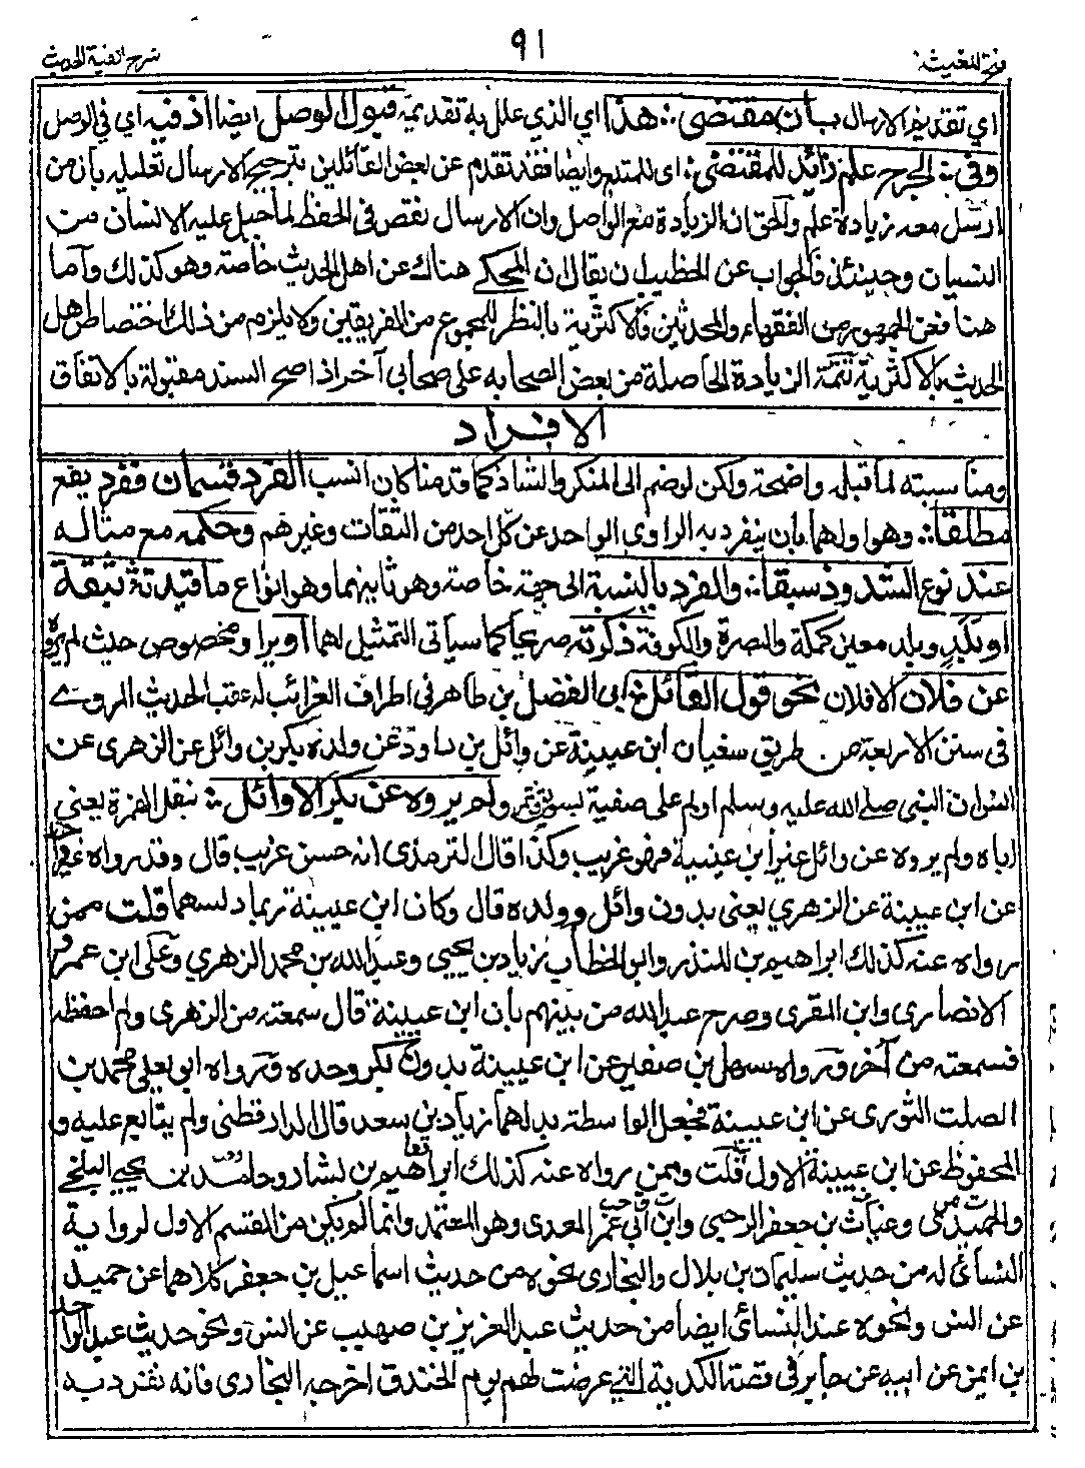 فتح المغيث
٩١
شرح الفية الحديث
اي تقديم الارسال بأن مقتضى : هذا اي الذي علل به تقديمه قبول الوصل ايضا اذ فيه اي في الوصل
وفي : الجرح علم زائد للمقتضى : اى للمتبع وايضا فقد تقدم عن بعض القائلين بترجيح الارسال تعليله بان من
ارسل معه زيادة علم والحق ان الزيادة مع الواصل وان الارسال نقص في الحفظ لما جبل عليه الانسان من
النسيان وحينئذ فالجواب عن الخطيب ان يقال ان المحكي هناك عن اهل الحديث خاصة وهو كذلك وأما
هنا فعن الجمهور من الفقهاء والمحدثين فالاكثرية بالنظر للمجموع من الفريقين ولا يلزم من ذلك اختصاص اهل
الحديث بالاكثرية تتمة الزيادة الحاصلة من بعض الصحابه على صحابي آخر اذا صح السند مقبولة بالاتفاق
الافراد
ومناسبته لما قبله واضحة ولكن لو ضم الى المنكر والشاذ كما قدمنا كان انسب الفرد قسمان ففرد يقع
مطلقا : وهو اولهما بان ينفرد به الراوى الواحد عن كل احد من الثقات وغيرهم وحكمه مع مثاله
عند نوع الشذوذ سبقا : والفرد بالنسبة الى جهة خاصة وهو ثانيهما وهو انواع ما قيدته بثقة
او بلد وبلد معين كمكة والبصرة والكوفة ذكرته صريحا كما سيأتى التمثيل لهما او برا ومخصوص حيث لم يروه
عن فلان الا فلان نحو قول القائل : ابى الفضل بن طاهر في اطراف الغرائب له عقب الحديث المروي
في سنن الاربعة من طريق سفيان ابن عيينة عن وائل بن داود عن ولده بكر بن وائل عن الزهرى عن
انس ان النبى صلے الله عليه وسلم اولم على صفية بسويق وتمر ولم يروه عن بكر الا وائل : بنقل الهمزة يعني
اباه ولم يروه عن وائل غير ابن عيينة فهو غريب وكذا قال الترمذى انه حسن غريب قال وقد رواه غير واحد
عن ابن عيينة عن الزهري يعنى بدون وائل وولده قال وكان ابن عيينة ربما دلسهما قلت ممن
رواه عنه كذلك ابراهيم بن المنذر وابو الخطاب زياد بن يحيى وعبد الله بن محمد الزهري وعلى ابن عمرو
الانصارى وابن المقرى وصرح عبد الله من بينهم بأن ابن عيينة قال سمعته من الزهرى ولم احفظه
فسمعته من آخر ورواه سهل بن صقير عن ابن عيينة بدون بكر وحده ورواه ابو يعلى محمد بن
الصلت الثورى عن ابن عيينة فجعل الواسطة بدلهما زياد بن سعد قال الدارقطنى ولم يتابع عليه و
المحفوظ عن ابن عيينة الاول قلت وممن رواه عنه كذلك ابراهيم بن بشار وحامد بن يحيى البلخي
والحميدى وغياث بن جعفر الرحبى وابن ابى عمر العدى وهو المعتمد وانما لم يكن من القسم الاول لرواية
النسائى له من حديث سليمان بن بلال والبخارى نحوه من حديث اسماعيل بن جعفر كلاهما عن حميد
عن انس ونحوه عند النسائى ايضا من حديث عبد العزيز بن صهيب عن انس ونحو حديث عبد الواحد
بن ايمن عن ابيه عن جابر في قصة الكدية التي عرضت لهم يوم الخندق اخرجه البخارى فانه تفرد به